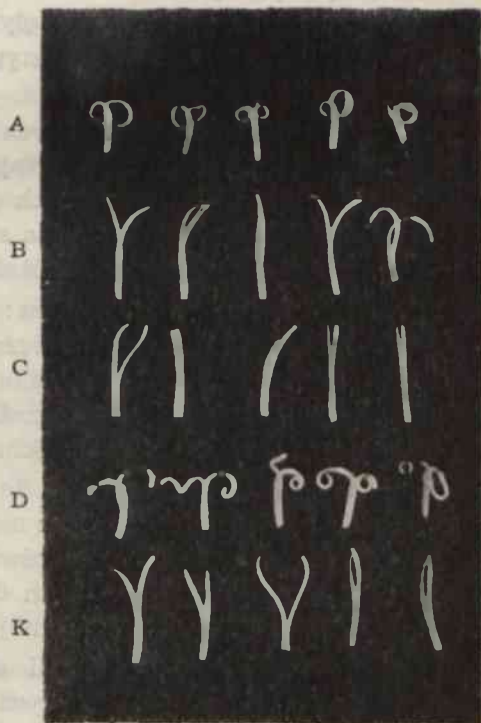 A
B
C
D
K